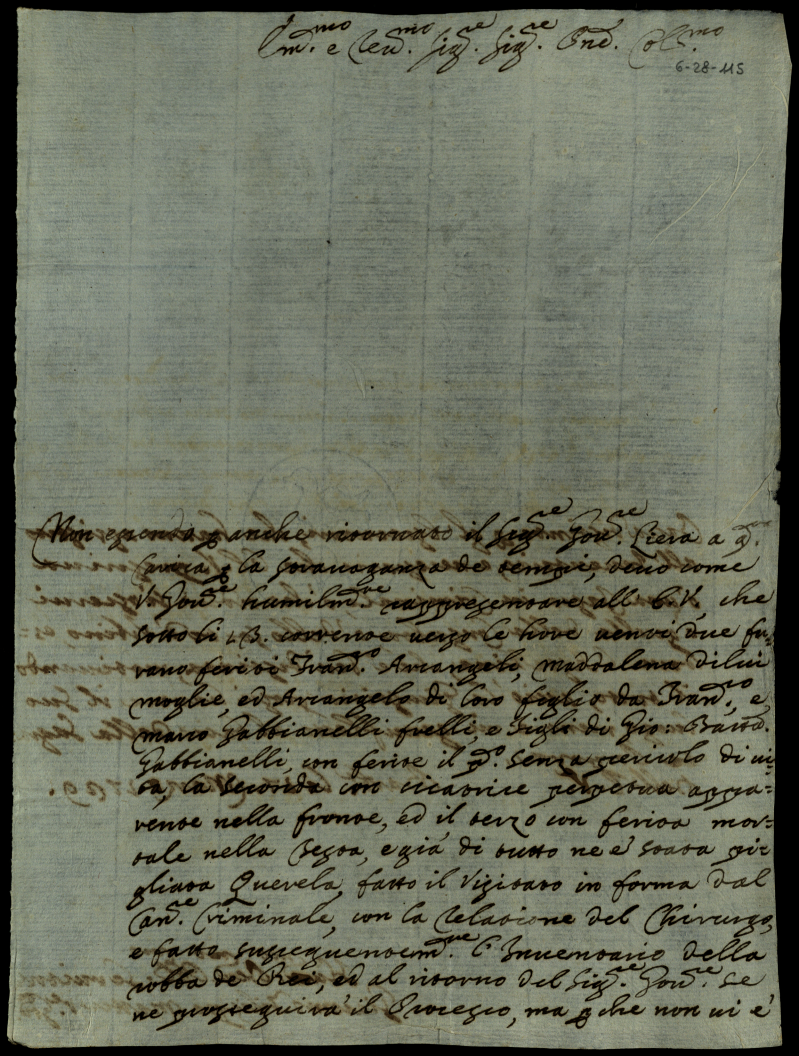 Ill.mo e Reu.mo Sig.re Sig.re Pne. Col.mo
6-28-115
Non essendo p anche ritornato il Sig.re Gou.re Liera a q.
carica p la strauaganza de tempi, deuo come
V. Gou.re humilm.te rappresentare all E.V. che
sotto li 13. corrente uerso le hore uenti due fu=
rano feriti Fran.co Arcangeli, maddalena di lui
moglie, ed Arcangelo di loro figlio da Fran.co, e
marco Gabbianelli frelli, e figli di Gio: Batta.
Gabbianelli, con ferite il p.o senza pericolo di ui=
ta, la seconda con cicatrice perpetua appa=
rente nella fronte, ed il terzo con ferita mor=
tale nella Testa, e già di tutto ne e' stata pi=
gliata Querela, fatto il Visitato in forma dal
Can.re Criminale, con la Relatione del Chirurgo,
e fatto susseguentem.te l'Inuentario della
robba de Rei, ed al ritorno del Sig.re Gou.re se
ne proseguirà il Processo, ma p che non ui è